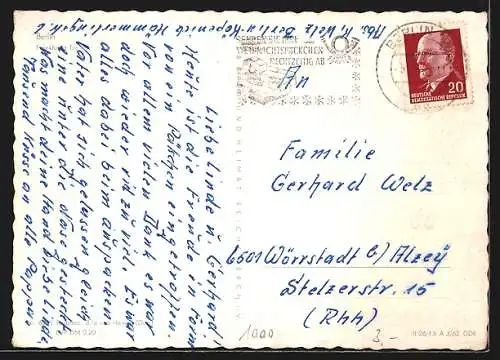 Abs. K. Welz Berlin-Köpenick Hämmerlingstr.
Berlin
BERLIN
SENDEN SIE IHRE
WEIHNACHTSPÄCKCHEN
RECHTZEITIG AB
An
20
DEUTSCHE
DEMOKRATISCHE REPUBLIK
Familie
Gerhard Welz
6501 Wörrstadt b/ Alzey
Stelzerstr. 15
(Rhh)
Liebe Linde u. Gerhard!
Heute ist die Freude in Form
von ein Päkchen eingetroffen.
Vor allem vielen Dank es war
doch wieder viel zu viel. E. war
alles dabei beim auspacken
Vater hat sich gelassen gleich
eine unter die Nase gesteckt
Was macht deine Hand Gisb. Linde.
Tausend Küsse an alle Pappa
1000
2,-